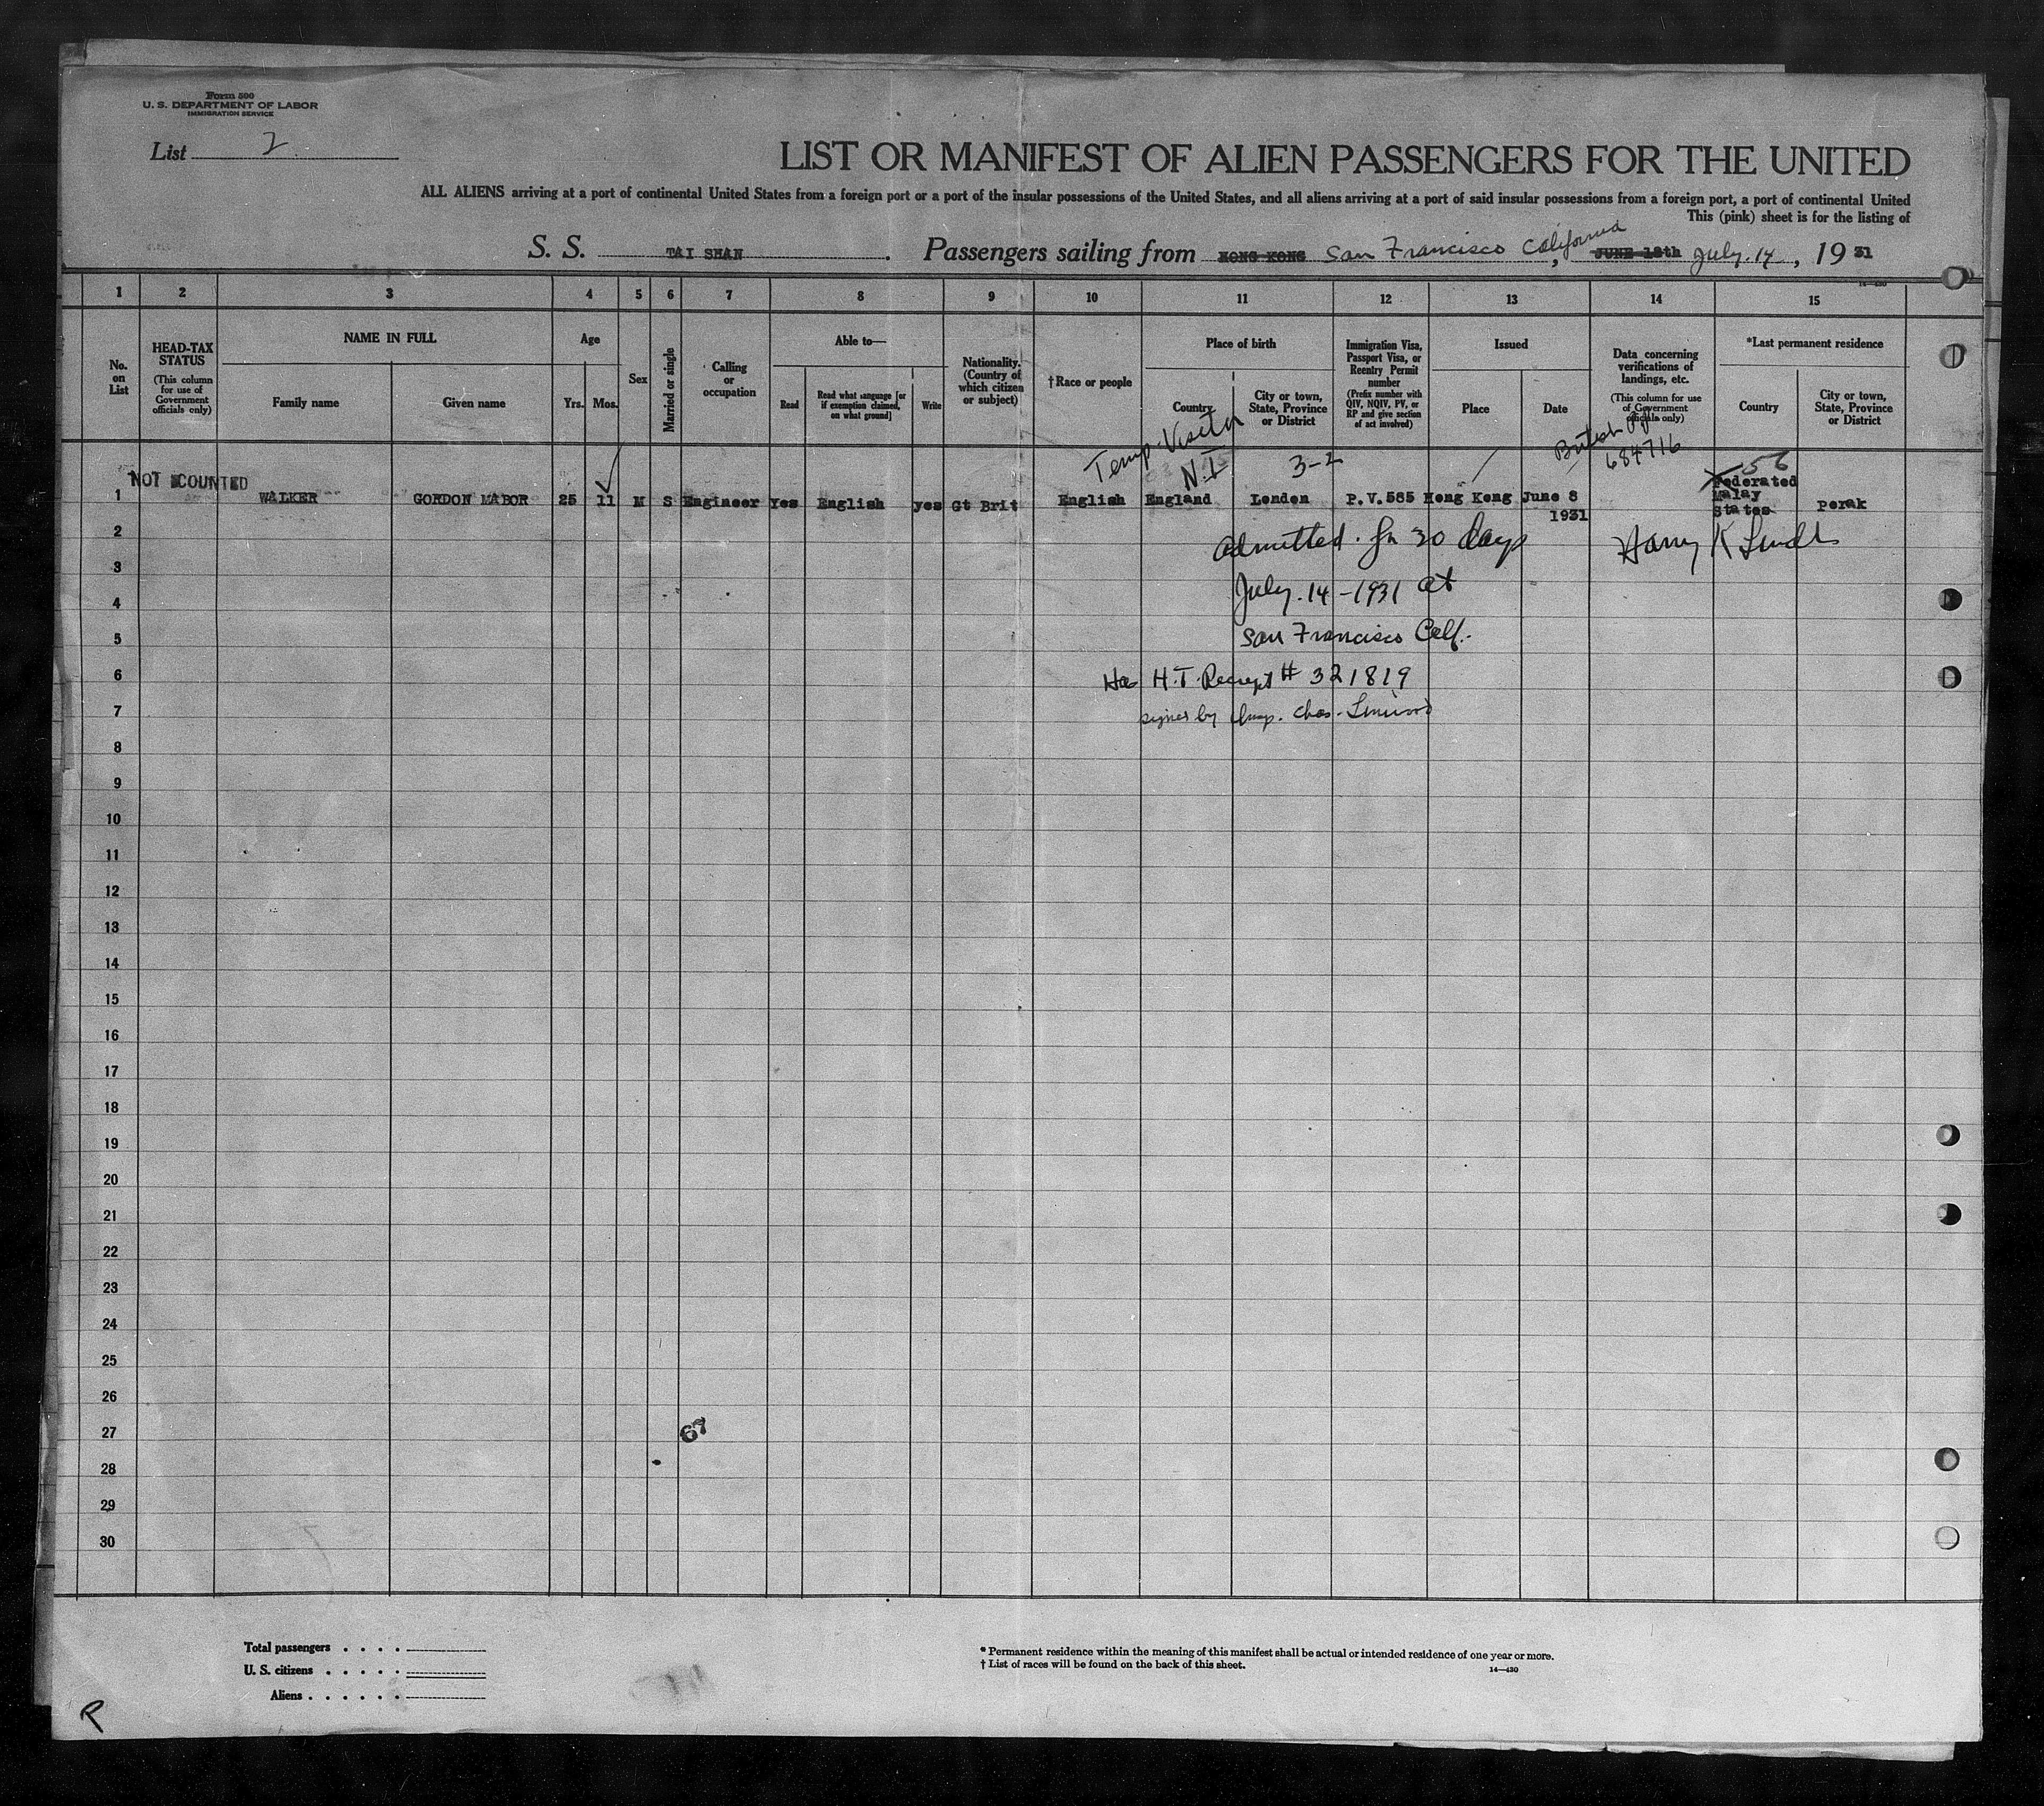 Form 500
U. S. DEPARTMENT OF LABOR
IMMIGRATION SERVICE
List 2
LIST OR MANIFEST OF ALIEN PASSENGERS FOR THE UNITED
ALL ALIENS arriving at a port of continental United States from a foreign port or a port of the insular possessions of the United States, and all aliens arriving at a port of said insular possessions from a foreign port, a port of continental United
This (pink) sheet is for the listing of
S. S. TAI SHAN. Passengers sailing from HONG KONG San Francisco California, JUNE 18th July. 14, 19 31
14—430
1 2 3 4 5 6 7 8 9 10 11 12 13 14 15
No. on List
HEAD-TAX STATUS
(This column for use of Government officials only)
NAME IN FULL
Family name
Given name
Age
Yrs. Mos.
Sex
Married or single
Calling or occupation
Able to—
Read
Read what language [or if exemption claimed, on what ground]
Write
Nationality. (Country of which citizen or subject)
†Race or people
Place of birth
Country
City or town, State, Province or District
Immigration Visa, Passport Visa, or Reentry Permit number
(Prefix number with QIV, NQIV, PV, or RP and give section of act involved)
Issued
Place
Date
Data concerning verifications of landings, etc.
(This column for use of Government officials only)
*Last permanent residence
Country
City or town, State, Province or District
Temp. Visitor
N.I
3-2
British
684716
56
NOT COUNTED
1 WALKER GORDON MABOR 25 11 M S Engineer Yes English yes Gt Brit English England London P.V. 585 Hong Kong June 8 1931 Federated Malay States Perak
2 Admitted. for 30 days Harry K
3
4 July. 14-1931 at
5 San Francisco Calf.
6 Has H.T. Receipt # 321819
7 signed by Insp. Chas.
8
9
10
11
12
13
14
15
16
17
18
19
20
21
22
23
24
25
26
27 67
28
29
30
Total passengers . . . .
U. S. citizens . . . . .
Aliens . . . . . .
* Permanent residence within the meaning of this manifest shall be actual or intended residence of one year or more.
† List of races will be found on the back of this sheet.
14—430
R